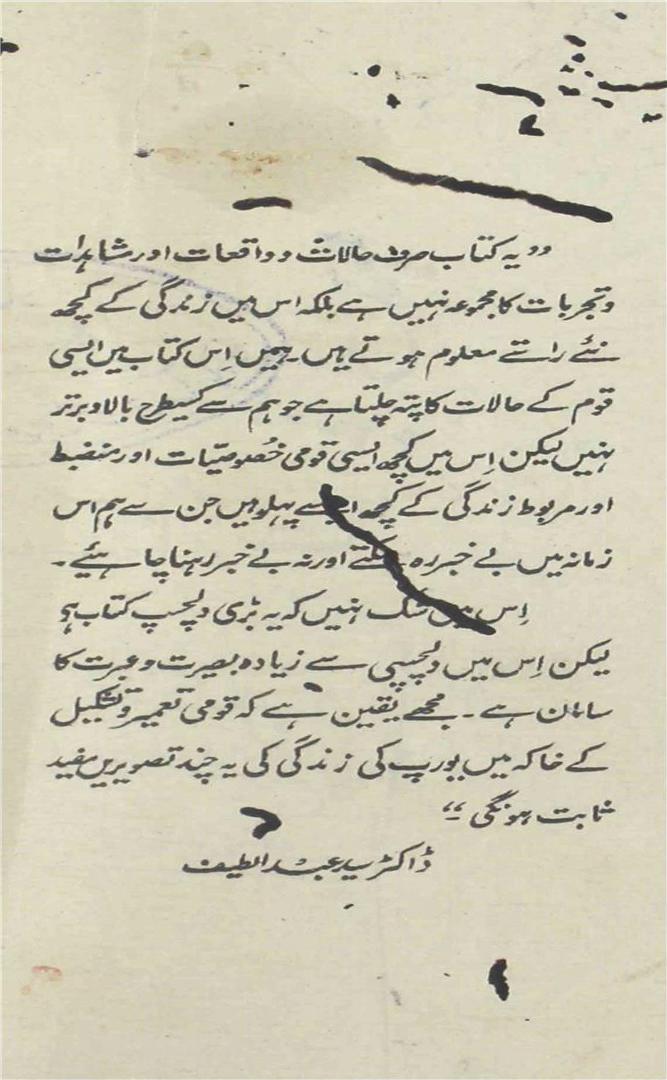 ”یہ کتاب صرف حالات و واقعات اور مشاہدات
و تجربات کا مجموعہ نہیں ہے بلکہ اس میں زندگی کے کچھ
نئے راستے معلوم ہوتے ہیں۔ ہمیں اِس کتاب میں ایسی
قوم کے حالات کا پتہ چلتا ہے جو ہم سے کسیطرح بالا و برتر
نہیں لیکن اِس میں کچھ ایسی قومی خُصوصیّات اور منضبط
اور مربوط زندگی کے کچھ ایسے پہلو ہیں جن سے ہم اس
زمانہ میں بے خبر رہ سکتے اور نہ بے خبر رہنا چاہئیے۔
اِس میں شک نہیں کہ یہ بڑی دلچسپ کتاب ہے
لیکن اِس میں دلچسپی سے زیادہ بصیرت و عبرت کا
سامان ہے۔ مجھے یقین ہے کہ قومی تعمیر و تشکیل
کے خاکہ میں یورپ کی زندگی کی یہ چند تصویریں مفید
ثابت ہونگی۔“
ڈاکٹر سید عبداللطیف